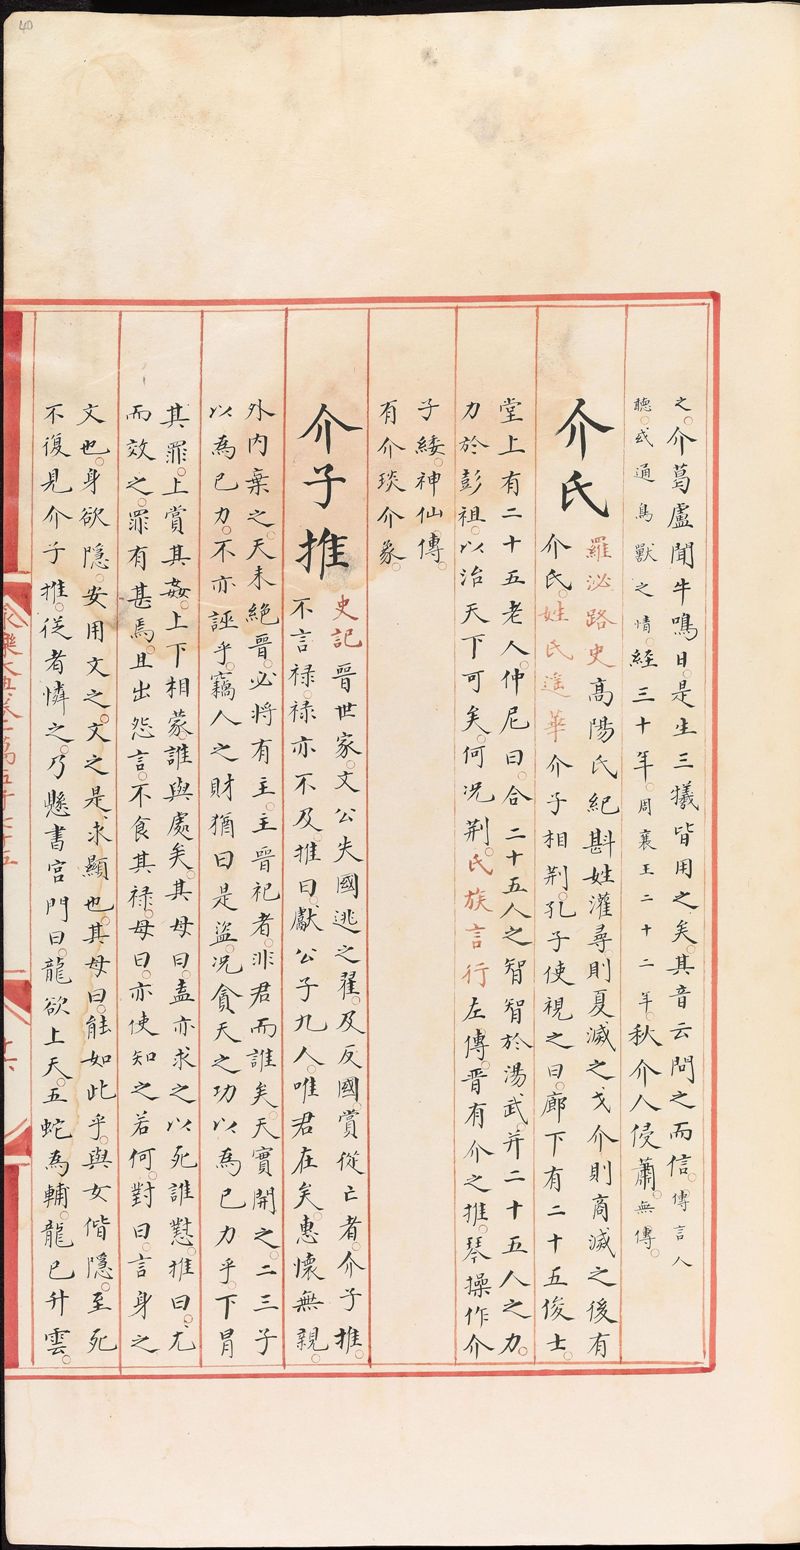 之。介葛盧聞牛鳴曰。是生三犧皆用之矣。其音云問之而信。傳言人
聽。或通鳥獸之情。經三十年。周襄王二十二年。秋介人侵蕭。無傳。
介氏
羅泌路史高陽氏紀斟姓灌尋。則夏滅之戈介則商滅之後有
介氏。姓氏遙華介子相荆。孔子使視之曰。廊下有二十五俊士。
堂上有二十五老人。仲尼曰。合二十五人之智智於湯武。并二十五人之力。
力於彭祖。以治天下可矣。何况荆。氏族言行左傳。晋有介之推。琴操作介
子綏。神仙傳。
有介琰介象。
介子推
史記晉世家。文公失國逃之翟。及反國。賞從亡者。介子推。
不言禄。禄亦不及。推曰。獻公子九人。唯君在矣。惠懷無親。
外内棄之。天未絶晉。必將有主。主晉祀者。非君而誰矣。天實開之。二三子
以為已力。不亦誣乎。竊人之財猶曰是盜。况貪天之功以為已力乎。下冒
其罪。上賞其姦。上下相蒙。誰與處矣。其母曰。盍亦求之以死誰懟。推曰。尤
而效之。罪有甚焉。且出怨言。不食其禄。母曰。亦使知之若何。對曰。言身之
文也。身欲隱。安用文之。文之是求顯也。其母曰。能如此乎。與女偕隱。至死
不復見介子推。從者憐之。乃懸書宫門曰。龍欲上天。五蛇為輔。龍已升雲。
40